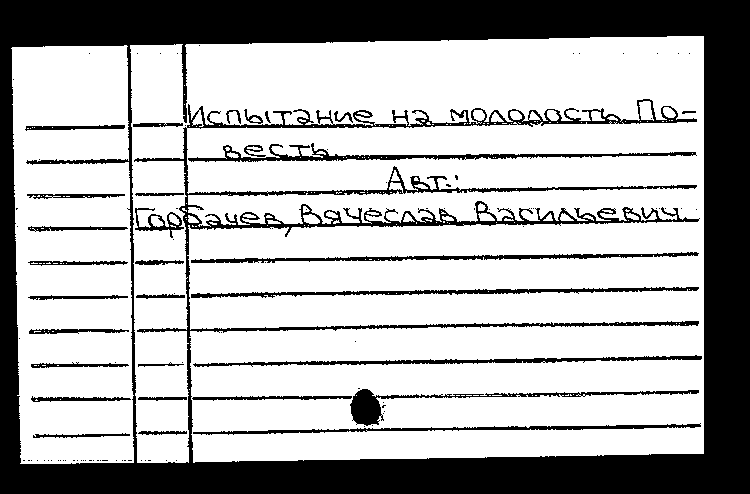 Испытание на молодость. По=
весть.
Авт.:
Горбачев, Вячеслав Васильевич.